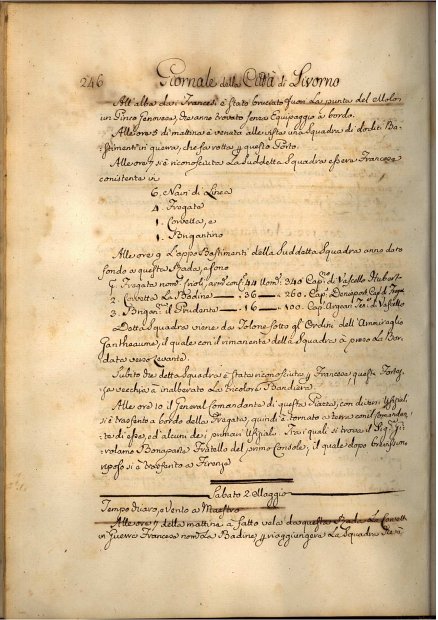 246 Giornale della Città di Livorno
All'alba da i Francesi è stato bruciato fuori La punta del Molo
un Pinco Genovese, che anno trovato senza Equipaggio a bordo.
Alle ore 5 di mattina è venuta alla vista una Squadra di dodici Ba-
stimenti in guerra, che fa rotta p questo Porto.
Alle ore 7 si è riconosciuta La suddetta Squadra essere Francese
consistente in
6. Navi di Linea
4. Fregate
1. Corvetta, e
1. Brigantino
Alle ore 9 L'appo Bastimenti della Suddetta Squadra anno dato
fondo a questa Rada, e sono
1 Fregata nom. arm. con C. 44 Uom. 340 Cap. di Vascello
2. Corvetta La Badine — 36 — 260. Cap.
3. Brigan. il Prudente — 16 — 100. Cap. di Vascello
Detta Squadra viene da Tolone sotto gl'Ordini dell'Ammiraglio
Gantheaume, il quale con il rimanente della Squadra à preso La Bor-
data verso Levante.
Subito che detta Squadra è stata riconosciuta p Francese, questa Fortez-
za vecchia à inalberato La tricolore Bandiera.
Alle ore 10 il General Comandante di questa Piazza, con diversi Ufizial.
si è trasferito a bordo della Fregata, quindi è tornato a terra con il Comandan-
te di essa, ed alcuni dei primari Ufizial. Trai quali si trova il Sig. Gi-
rolamo Bonaparte Fratello del primo Console, il quale dopo breviss.mo
riposo si è trasferito a Firenze
Sabato 2 Maggio
Tempo chiaro, e Vento a Maestro
Alle ore 7 della mattina à fatto vela da questa Rada La Corvett.
in Guerra Francese nom. La Badine, p raggiungere La Squadra